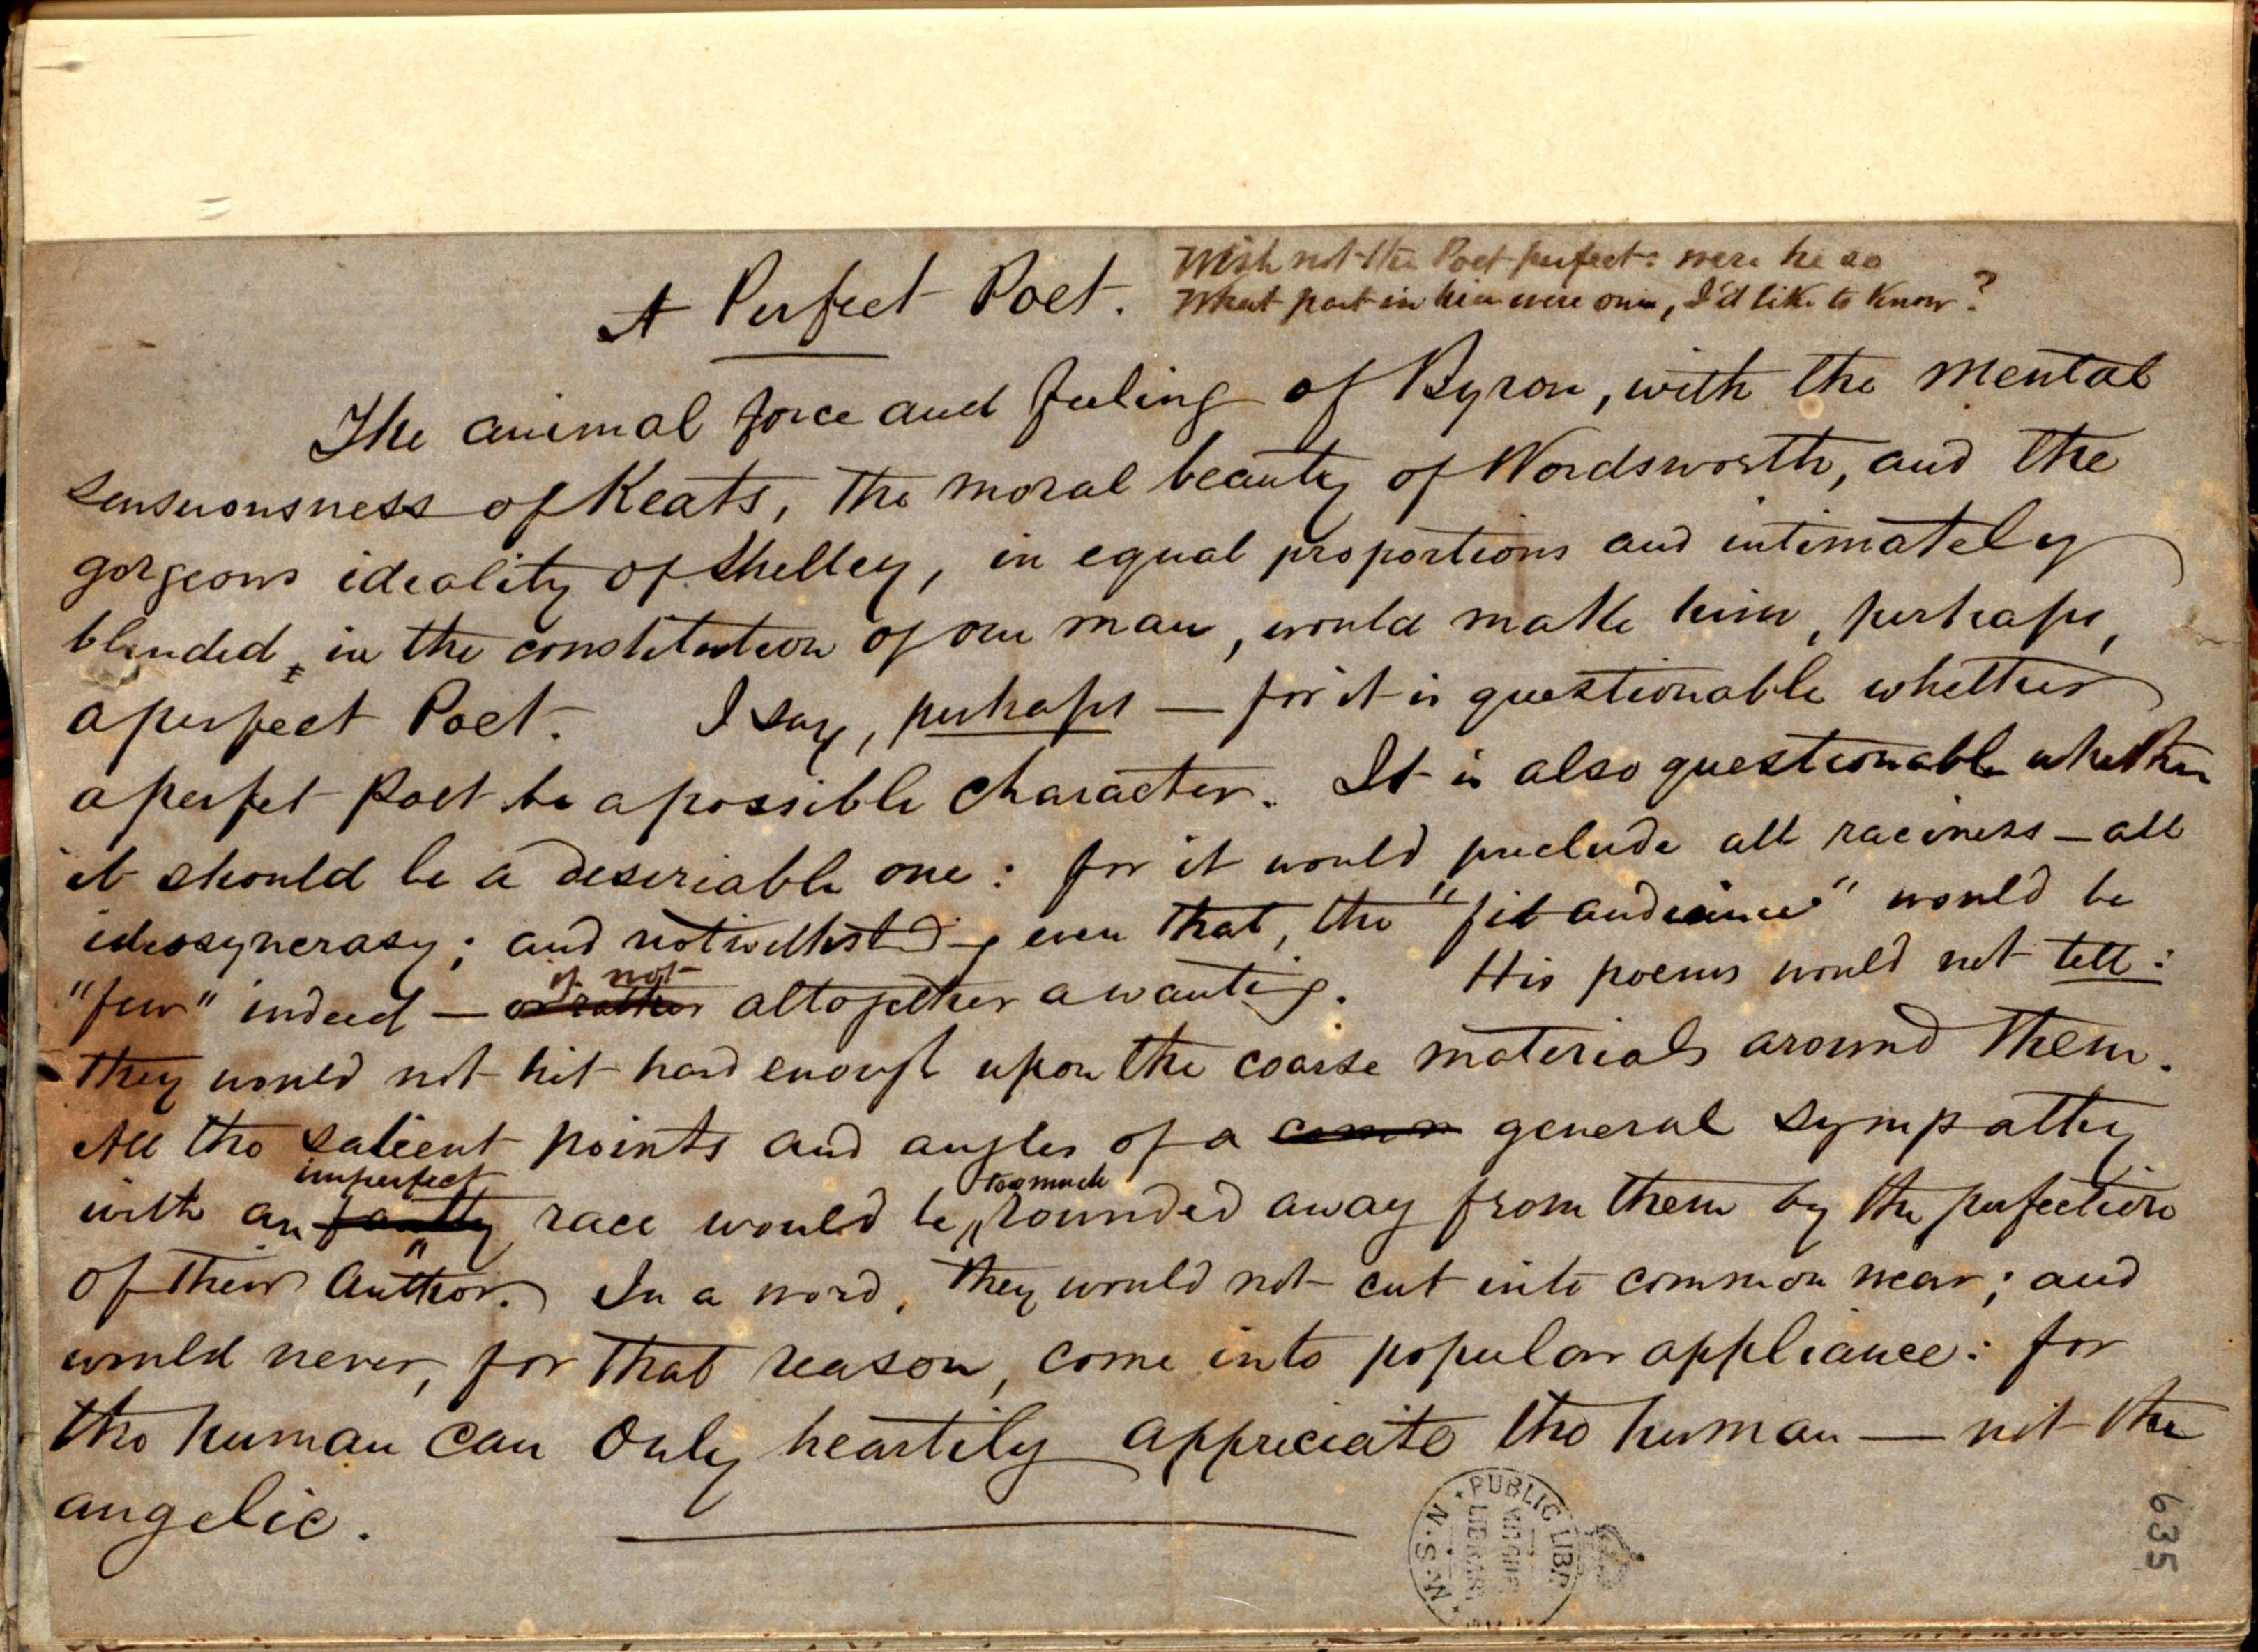 A Perfect Poet.
Wish not the Poet perfect: were he so
What part in him were our, I'd like to know?
The animal force and feeling of Byron, with the mental
sensuousness of Keats, the moral beauty of Wordsworth, and the
gorgeous ideality of Shelley, in equal proportions and intimately
blended, in the constitution of one man, would make him, perhaps,
a perfect Poet. I say, perhaps — for it is questionable whether
a perfet Poet be a possible character. It is also questionable whether
it should be a desireable one: for it would preclude all raciness — all
ideosyncrasy; and notwithstdg even that, the "fit audience" would be
if not
"few" indeed — or rather altogether awanting. His poems would not tell:
they would not hit hard enough upon the coarse materials around them.
All the salient points and angles of a comon general sympathy
imperfect too much
with an faulty race would be rounded away from them by the perfection
of their author. In a word, they would not cut into common wear; and
would never, for that reason, come into popular appliance: for
the human can only heartily appreciate the human — not the
angelic.
PUBLIC LIBR
N.S.W.
635